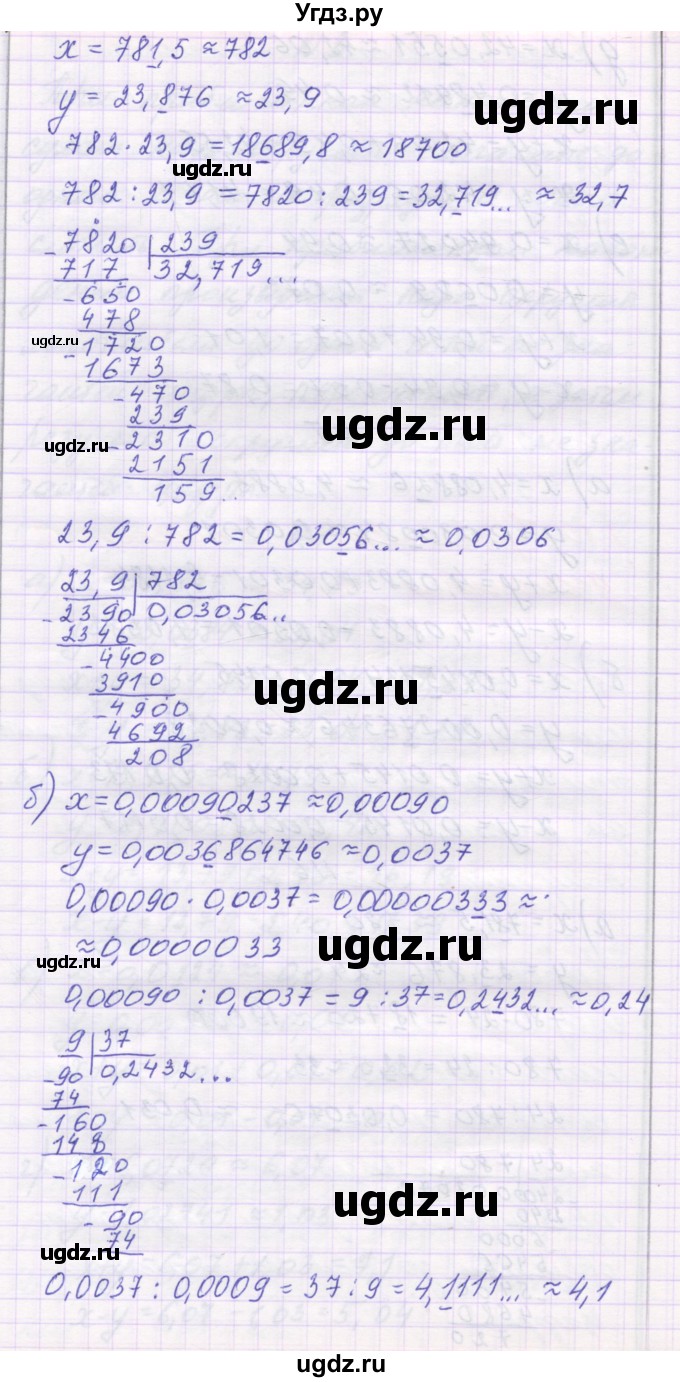 Угдз.ру
x = 781,5 ≈ 782
y = 23,876 ≈ 23,9
782 · 23,9 = 18689,8 ≈ 18700
782 : 23,9 = 7820 : 239 = 32,719... ≈ 32,7
- 7820 | 239
717 | 32,719...
- 650
478
- 1720
1673
- 470
239
- 2310
2151
159..
23,9 : 782 = 0,03056... ≈ 0,0306
23,9 | 782
- 2390 | 0,03056..
2346
- 4400
3910
- 4900
4692
208
б) x = 0,00090237 ≈ 0,00090
y = 0,0036864746 ≈ 0,0037
0,00090 · 0,0037 = 0,00000333 ≈
≈ 0,0000033
0,00090 : 0,0037 = 9 : 37 = 0,2432... ≈ 0,24
9 | 37
- 90 | 0,2432...
74
- 160
148
- 120
111
- 90
74
0,0037 : 0,0009 = 37 : 9 = 4,1111... ≈ 4,1
ugdz.ru
ugdz.ru
ugdz.ru
ugdz.ru
ugdz.ru
ugdz.ru
ugdz.ru
ugdz.ru
ugdz.ru
ugdz.ru
ugdz.ru